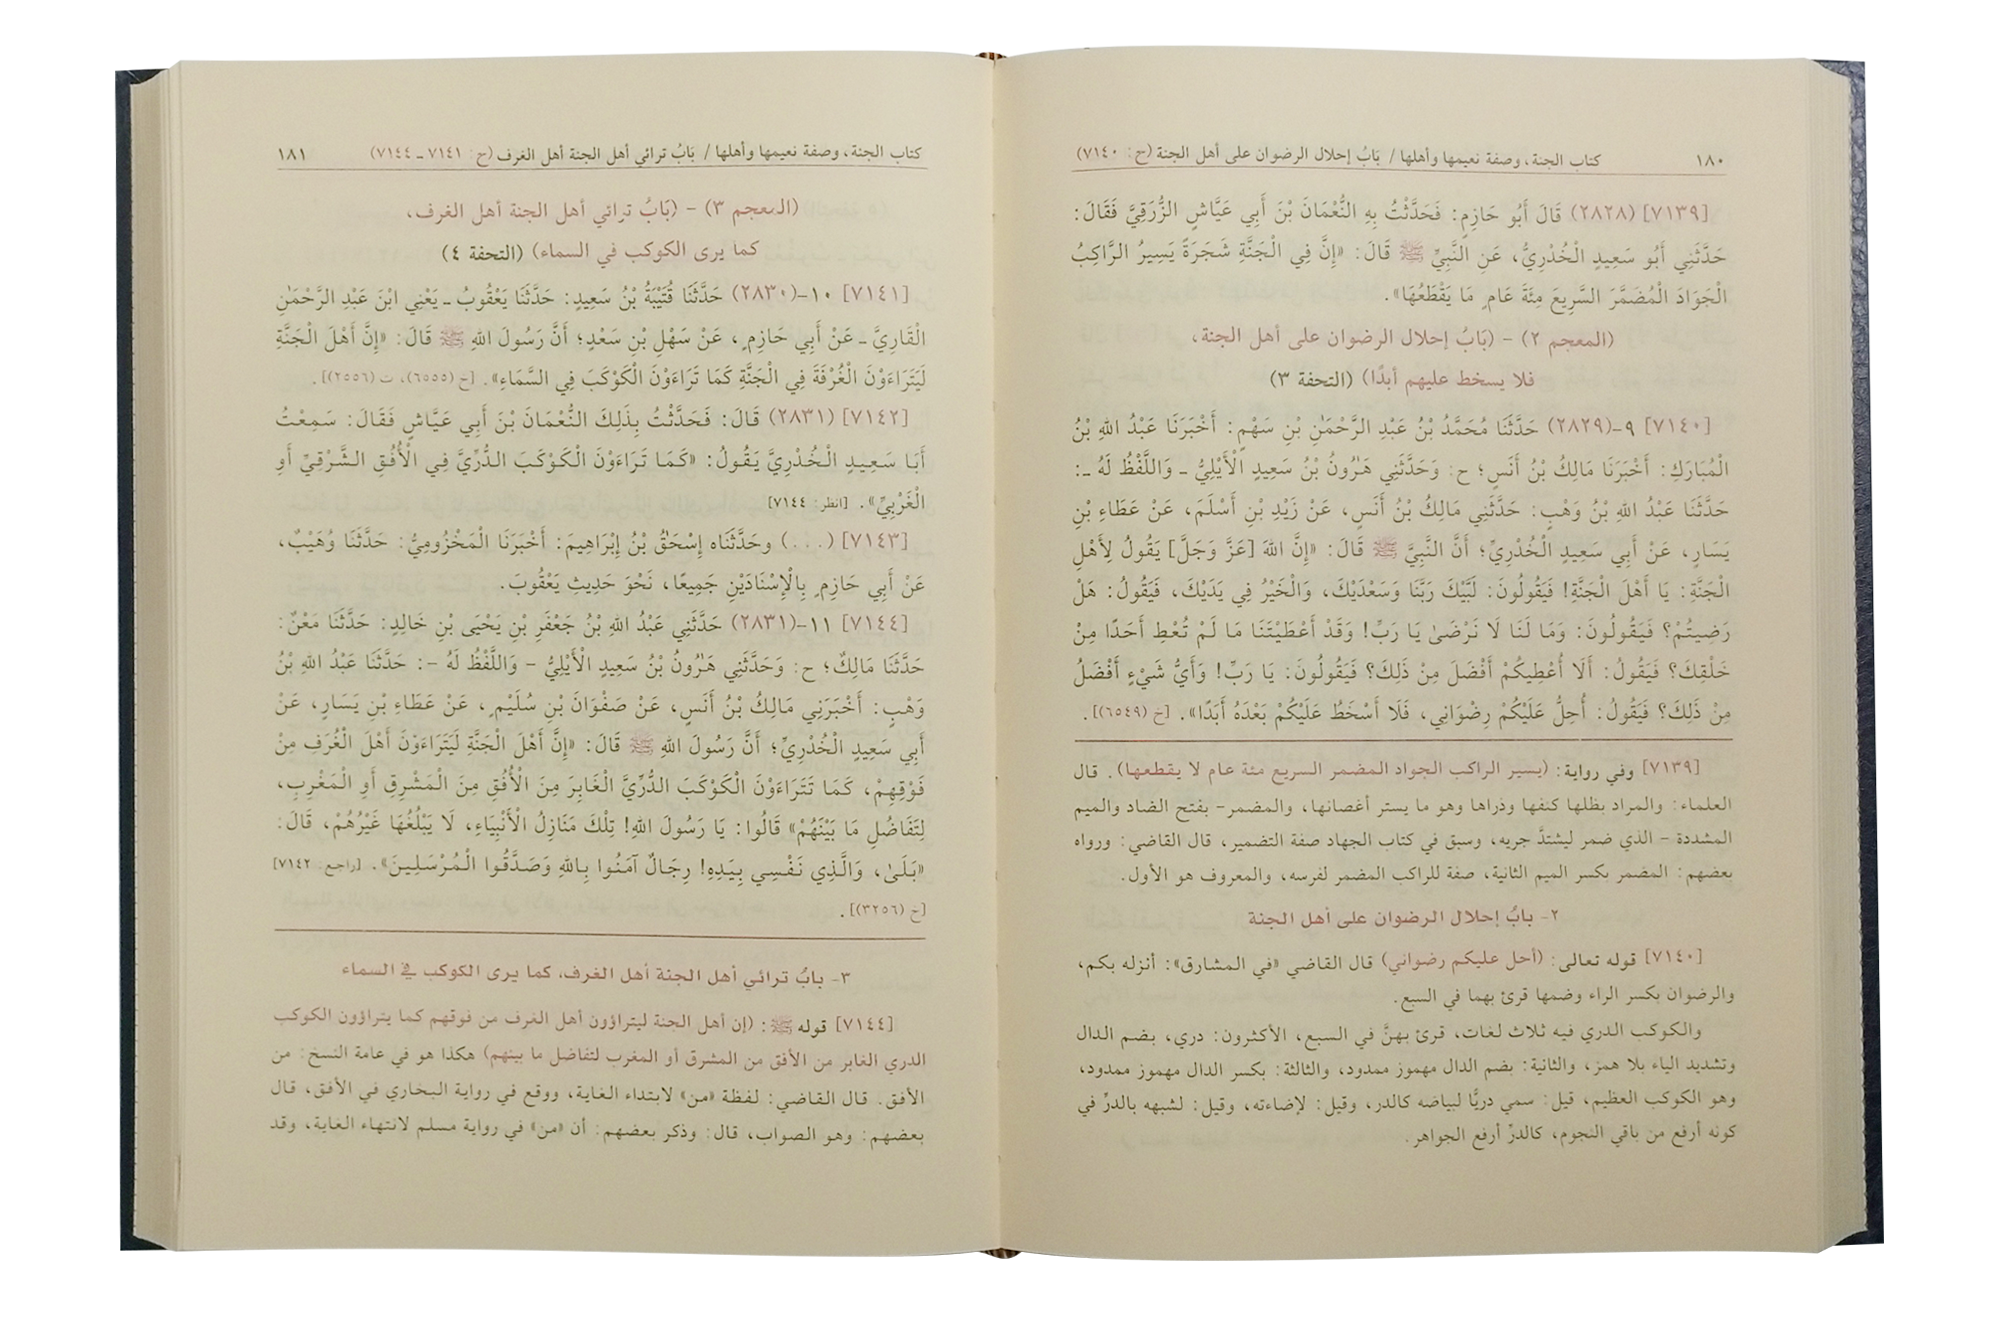 ١٨٠ كتاب الجنة، وصفة نعيمها وأهلها / بَابُ إحلال الرضوان على أهل الجنة (ح: ٧١٤٠)
[٧١٣٩] (٢٨٢٨) قَالَ أَبُو حَازِمٍ: فَحَدَّثْتُ بِهِ النُّعْمَانَ بْنَ أَبِي عَيَّاشٍ الزُّرَقِيَّ فَقَالَ:
حَدَّثَنِي أَبُو سَعِيدٍ الْخُدْرِيُّ، عَنِ النَّبِيِّ ﷺ قَالَ: «إِنَّ فِي الْجَنَّةِ شَجَرَةً يَسِيرُ الرَّاكِبُ
الْجَوَادَ الْمُضَمَّرَ السَّرِيعَ مِئَةَ عَامٍ مَا يَقْطَعُهَا».
(المعجم ٢) - (بَابُ إحلال الرضوان على أهل الجنة،
فلا يسخط عليهم أبدًا) (التحفة ٣)
[٧١٤٠] ٩-(٢٨٢٩) حَدَّثَنَا مُحَمَّدُ بْنُ عَبْدِ الرَّحْمَٰنِ بْنِ سَهْمٍ: أَخْبَرَنَا عَبْدُ اللهِ بْنُ
الْمُبَارَكِ: أَخْبَرَنَا مَالِكُ بْنُ أَنَسٍ؛ ح: وَحَدَّثَنِي هَٰرُونُ بْنُ سَعِيدٍ الْأَيْلِيُّ ـ وَاللَّفْظُ لَهُ ـ:
حَدَّثَنَا عَبْدُ اللهِ بْنُ وَهْبٍ: حَدَّثَنِي مَالِكُ بْنُ أَنَسٍ، عَنْ زَيْدِ بْنِ أَسْلَمَ، عَنْ عَطَاءِ بْنِ
يَسَارٍ، عَنْ أَبِي سَعِيدٍ الْخُدْرِيِّ؛ أَنَّ النَّبِيَّ ﷺ قَالَ: «إِنَّ اللهَ [عَزَّ وَجَلَّ] يَقُولُ لِأَهْلِ
الْجَنَّةِ: يَا أَهْلَ الْجَنَّةِ! فَيَقُولُونَ: لَبَّيْكَ رَبَّنَا وَسَعْدَيْكَ، وَالْخَيْرُ فِي يَدَيْكَ، فَيَقُولُ: هَلْ
رَضِيتُمْ؟ فَيَقُولُونَ: وَمَا لَنَا لَا نَرْضَىٰ يَا رَبِّ! وَقَدْ أَعْطَيْتَنَا مَا لَمْ تُعْطِ أَحَدًا مِنْ
خَلْقِكَ؟ فَيَقُولُ: أَلَا أُعْطِيكُمْ أَفْضَلَ مِنْ ذَلِكَ؟ فَيَقُولُونَ: يَا رَبِّ! وَأَيُّ شَيْءٍ أَفْضَلُ
مِنْ ذَلِكَ؟ فَيَقُولُ: أُحِلُّ عَلَيْكُمْ رِضْوَانِي، فَلَا أَسْخَطُ عَلَيْكُمْ بَعْدَهُ أَبَدًا». [خ (٦٥٤٩)].
[٧١٣٩] وفي رواية: (يسير الراكب الجواد المضمر السريع مئة عام لا يقطعها). قال
العلماء: والمراد بظلها كنفها وذراها وهو ما يستر أغصانها، والمضمر- بفتح الضاد والميم
المشددة - الذي ضمر ليشتدَّ جريه، وسبق في كتاب الجهاد صفة التضمير، قال القاضي: ورواه
بعضهم: المضمر بكسر الميم الثانية، صفة للراكب المضمر لفرسه، والمعروف هو الأول.
٢- بابُ إحلال الرضوان على أهل الجنة
[٧١٤٠] قوله تعالى: (أحل عليكم رضواني) قال القاضي «في المشارق»: أنزله بكم،
والرضوان بكسر الراء وضمها قرئ بهما في السبع.
والكوكب الدري فيه ثلاث لغات، قرئ بهنَّ في السبع، الأكثرون: دري، بضم الدال
وتشديد الياء بلا همز، والثانية: بضم الدال مهموز ممدود، والثالثة: بكسر الدال مهموز ممدود،
وهو الكوكب العظيم، قيل: سمي دريًّا لبياضه كالدر، وقيل: لإضاءته، وقيل: لشبهه بالدرِّ في
كونه أرفع من باقي النجوم، كالدرِّ أرفع الجواهر.
كتاب الجنة، وصفة نعيمها وأهلها / بَابُ ترائي أهل الجنة أهل الغرف (ح: ٧١٤١ ـ ٧١٤٤) ١٨١
(المعجم ٣) - (بَابُ ترائي أهل الجنة أهل الغرف،
كما يرى الكوكب في السماء) (التحفة ٤)
[٧١٤١] ١٠-(٢٨٣٠) حَدَّثَنَا قُتَيْبَةُ بْنُ سَعِيدٍ: حَدَّثَنَا يَعْقُوبُ ـ يَعْنِي ابْنَ عَبْدِ الرَّحْمَٰنِ
الْقَارِيَّ ـ عَنْ أَبِي حَازِمٍ، عَنْ سَهْلِ بْنِ سَعْدٍ؛ أَنَّ رَسُولَ اللهِ ﷺ قَالَ: «إِنَّ أَهْلَ الْجَنَّةِ
لَيَتَرَاءَوْنَ الْغُرْفَةَ فِي الْجَنَّةِ كَمَا تَرَاءَوْنَ الْكَوْكَبَ فِي السَّمَاءِ». [خ (٦٥٥٥)، ت (٢٥٥٦)].
[٧١٤٢] (٢٨٣١) قَالَ: فَحَدَّثْتُ بِذَلِكَ النُّعْمَانَ بْنَ أَبِي عَيَّاشٍ فَقَالَ: سَمِعْتُ
أَبَا سَعِيدٍ الْخُدْرِيَّ يَقُولُ: «كَمَا تَرَاءَوْنَ الْكَوْكَبَ الدُّرِّيَّ فِي الْأُفُقِ الشَّرْقِيِّ أَوِ
الْغَرْبِيِّ». [انظر: ٧١٤٤]
[٧١٤٣] (...) وحَدَّثَنَاه إِسْحَٰقُ بْنُ إِبْرَاهِيمَ: أَخْبَرَنَا الْمَخْزُومِيُّ: حَدَّثَنَا وُهَيْبٌ،
عَنْ أَبِي حَازِمٍ بِالْإِسْنَادَيْنِ جَمِيعًا، نَحْوَ حَدِيثِ يَعْقُوبَ.
[٧١٤٤] ١١-(٢٨٣١) حَدَّثَنِي عَبْدُ اللهِ بْنُ جَعْفَرِ بْنِ يَحْيَى بْنِ خَالِدٍ: حَدَّثَنَا مَعْنٌ:
حَدَّثَنَا مَالِكٌ؛ ح: وَحَدَّثَنِي هَٰرُونُ بْنُ سَعِيدٍ الْأَيْلِيُّ - وَاللَّفْظُ لَهُ -: حَدَّثَنَا عَبْدُ اللهِ بْنُ
وَهْبٍ: أَخْبَرَنِي مَالِكُ بْنُ أَنَسٍ، عَنْ صَفْوَانَ بْنِ سُلَيْمٍ، عَنْ عَطَاءِ بْنِ يَسَارٍ، عَنْ
أَبِي سَعِيدٍ الْخُدْرِيِّ؛ أَنَّ رَسُولَ اللهِ ﷺ قَالَ: «إِنَّ أَهْلَ الْجَنَّةِ لَيَتَرَاءَوْنَ أَهْلَ الْغُرَفِ مِنْ
فَوْقِهِمْ، كَمَا تَتَرَاءَوْنَ الْكَوْكَبَ الدُّرِّيَّ الْغَابِرَ مِنَ الْأُفُقِ مِنَ الْمَشْرِقِ أَوِ الْمَغْرِبِ،
لِتَفَاضُلِ مَا بَيْنَهُمْ» قَالُوا: يَا رَسُولَ اللهِ! تِلْكَ مَنَازِلُ الْأَنْبِيَاءِ، لَا يَبْلُغُهَا غَيْرُهُمْ، قَالَ:
«بَلَىٰ، وَالَّذِي نَفْسِي بِيَدِهِ! رِجَالٌ آمَنُوا بِاللهِ وَصَدَّقُوا الْمُرْسَلِينَ». [راجع: ٧١٤٢]
[خ (٣٢٥٦)].
٣- بابُ ترائي أهل الجنة أهل الغرف، كما يرى الكوكب في السماء
[٧١٤٤] قوله ﷺ: (إن أهل الجنة ليتراؤون أهل الغرف من فوقهم كما يتراؤون الكوكب
الدري الغابر من الأفق من المشرق أو المغرب لتفاضل ما بينهم) هكذا هو في عامة النسخ: من
الأفق. قال القاضي: لفظة «من» لابتداء الغاية، ووقع في رواية البخاري في الأفق، قال
بعضهم: وهو الصواب، قال: وذكر بعضهم: أن «من» في رواية مسلم لانتهاء الغاية، وقد